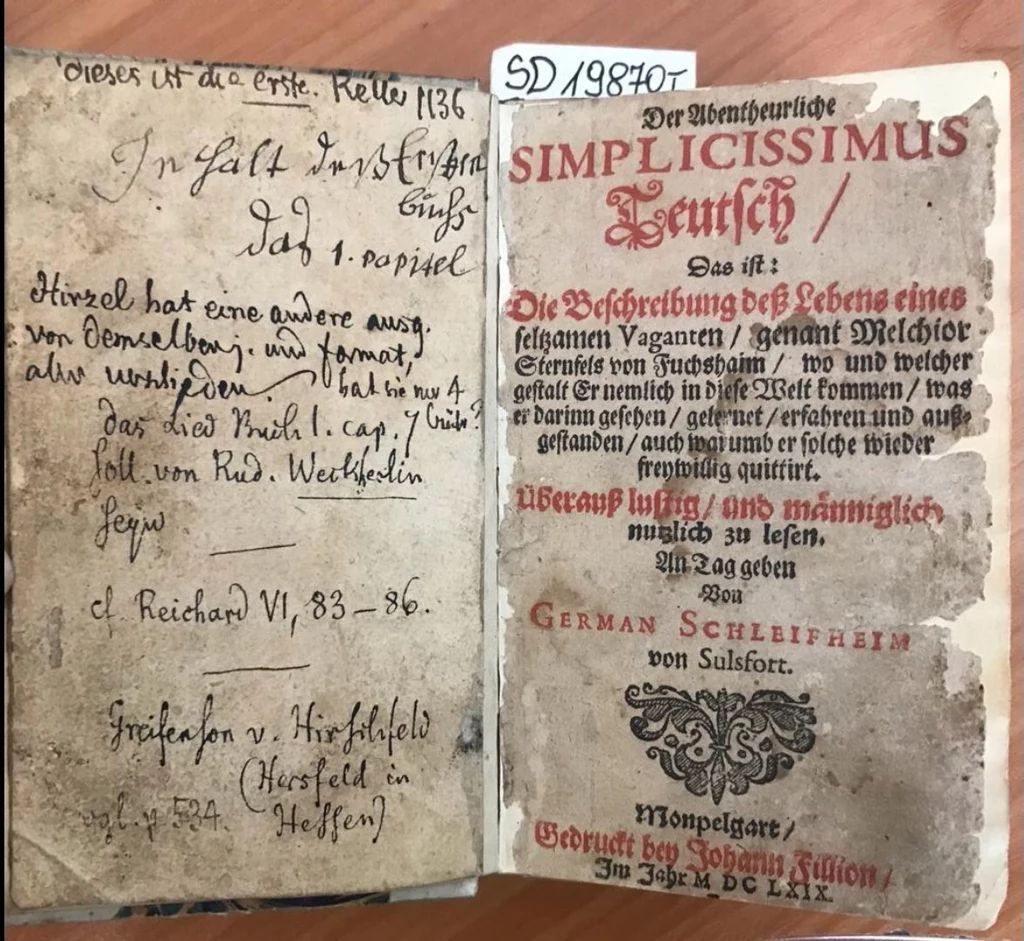 dieses ist die erste. Keller 1136
Inhalt deß Ersten
buchs
das 1. capitel
Hirzel hat eine andere ausg.
von demselben j. und format,
aber verschieden. hat sie nur 4
das Lied Buch 1. cap. 7
soll von Rud. Weckherlin
seyn
cf. Reichard VI, 83–86.
Greifenson v. Hirschfeld
(Hersfeld in
vgl. p 534. Hessen)
SD 19870
Der Abentheurliche
SIMPLICISSIMUS
Teutsch /
Das ist:
Die Beschreibung deß Lebens eines
seltzamen Vaganten / genant Melchior
Sternfels von Fuchshaim / wo und welcher
gestalt Er nemlich in diese Welt kommen / was
er darinn gesehen / gelernet / erfahren und auß-
gestanden / auch warumb er solche wieder
freywillig quittirt.
Überauß lustig / und männiglich
nutzlich zu lesen.
An Tag geben
Von
GERMAN SCHLEIFHEIM
von Sulsfort.
Monpelgart /
Gedruckt bey Johann Fillion /
Im Jahr M DC LXIX.